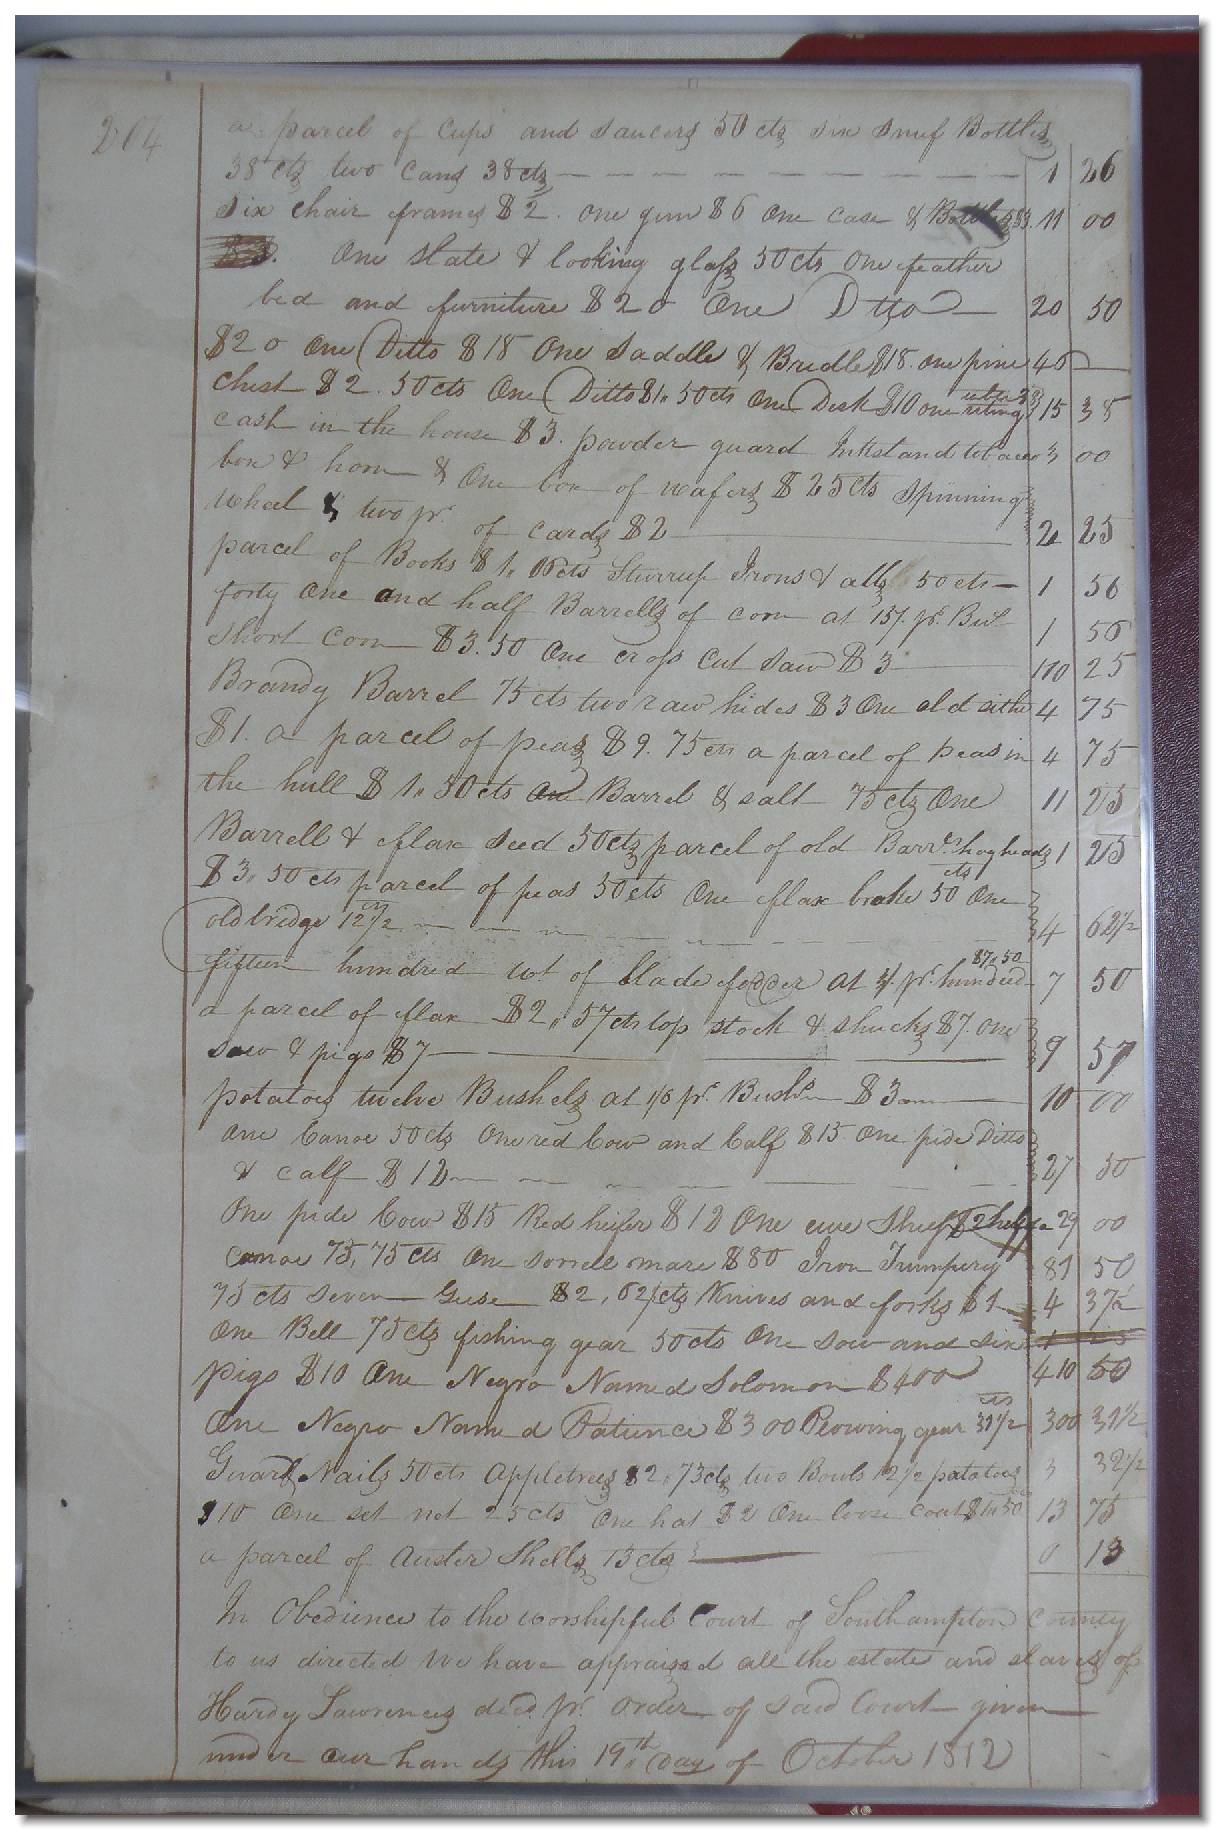 204
a parcel of Cups and Saucers 50 cts six Snuf Bottles
38 cts two Cans 38 cts 1 26
Six Chair frames $2. one gun $6 One Case & Bottles $3. 11 00
One slate & looking glass 50 cts One feather
bed and furniture $20 One Ditto 20 50
$20 One Ditto $18 One Saddle & Bridle $18. one pine 46
Chest $2.50 cts One Ditto $1.50 cts One Desk $10 one 15 38
Cash in the house $3. powder guard Inkstand tobacco 3 00
box & horn & One box of wafers $25 cts Spinning
Wheel & two pr. of Cards $2 2 25
parcel of Books $1. cts Stirrup Irons & alls 50 cts 1 50
forty One and half Barrells of corn at 15/. pr. Bul 1 50
Short Corn $3.50 One cross Cut Saw $3 110 25
Brandy Barrel 75 cts two raw hides $3 One old sithe 4 75
$1. a parcel of peas $9.75 cts a parcel of peas in 4 75
the hull $1.50 cts One Barrel & salt 75 cts One 11 25
Barrell & flax Seed 50 cts parcel of old Barrls. hogheads 1 25
$3.50 cts parcel of peas 50 cts One flax brake 50 cts One
old bridge 12 1/2 cts 4 62 1/2
fifteen hundred wt of blade fodder at 3/. pr. hundred $7.50 7 50
a parcel of flax $2.57 cts top stock & shucks $7. One
Sow & pigs $7 9 57
potatoes twelve Bushels at 1/6 pr. Bushn $3 10 00
One Canoe 50 cts One red Cow and Calf $15 One pide Ditto
& calf $12 27 50
One pide Cow $15 Red heifer $12 One ewe Sheep $2 29 00
Canoe 75, 75 cts One Sorrell mare $80 Iron Trumpery 81 50
75 cts Seven Geese $2, 62 1/2 cts Knives and forks $1 4 37 1/2
One Bell 75 cts fishing gear 50 cts One Sow and Six
pigs $10 One Negro Named Solomon $400 410 50
One Negro Named Patience $300 Plowing gear 31 1/2 cts 300 31 1/2
Nails 50 cts Appletrees $2.75 cts two Bowls 12 1/2 potatoes 3 32 1/2
$10 One set net 25 cts One hat $2 One loose Coat $1.50 13 75
a parcel of Auster Shells 13 cts 0 13
In Obedience to the worshipful Court of Southampton County
to us directed We have appraised all the estate and slaves of
Hardy Lawrences decd. pr. order of said Court given
under our hands this 19th. Day of October 1812